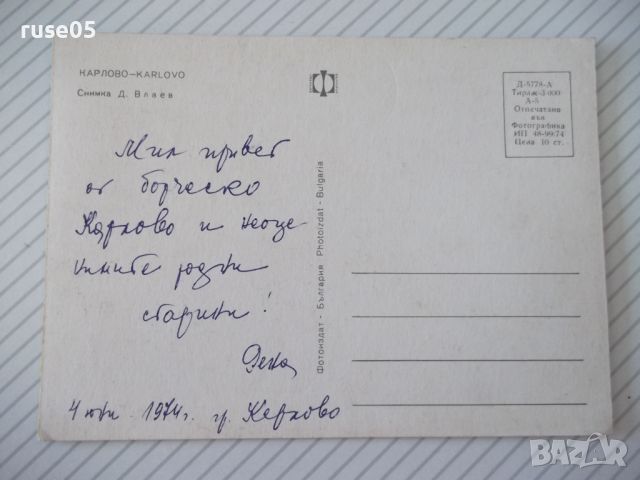 ruse05
КАРЛОВО—KARLOVO
Снимка Д. Влаев
Д-5778-А
Тираж 3 000
А-5
Отпечатано
във
Фотографика
ИП 48-99/74
Цена 10 ст.
Мил привет
от борческо
Карлово и неоце-
нимите родни
старини!
4 юни 1974 г. гр. Карлово
Фотоиздат - България Photoizdat - Bulgaria
BAZAR